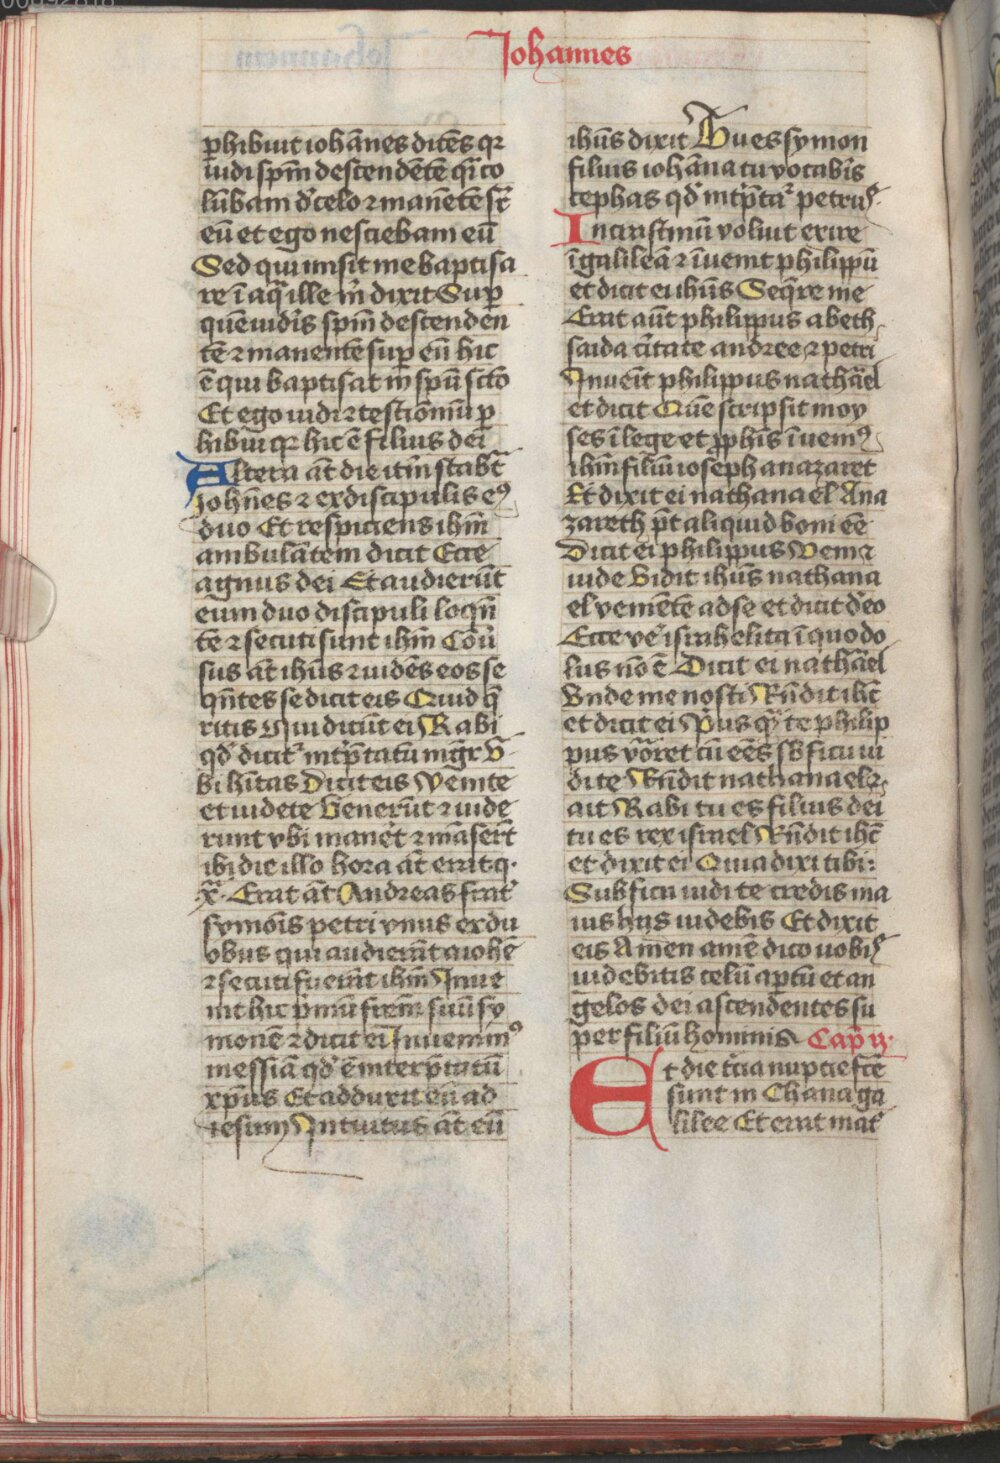 Johannes
phibuit iohānes dicēs qꝛ
uidi spm̄ descendētē qi co
lūbam d' celo ⁊ manētē sr̄
eū et ego nesciebam eū
Sed qui misit me baptisa
re ī aqͣ ille m̄ dixit Sup̄
quē uidis spm̄ descenden
tē ⁊ manentē sup̄ eū hic
ē qui baptisat in spū scō
Et ego uidi ⁊ testīoniū p̄
hibui qꝛ hic ē filius dei
Altera āt die itm̄ stabt̄
Joh̄nes ⁊ ex discipulis eꝰ
duo Et respiciens ihm̄
ambulātem dicit Ecce
agnus dei Et audierūt
eum duo discipuli loqn̄
tē ⁊ secuti sunt ihm̄ Cōu'
sus āt ihūs ⁊ uidēs eos se
qn̄tes se dicit eis Quid q̄
ritis Qui dicūt ei Rabi
qd' dicitꝛ int'p̄tatū mgr V
bi hītas Dicit eis Venite
et uidete Venerūt ⁊ uide
runt vbi manet ⁊ māserūt
ibi die illo hora āt erat q̄.
xͣ. Erat āt Andreas frat'
symōis petri vnus ex du
obus qui audierāt a iohē
⁊ secuti fuerāt ihm̄ Inue
nit hic p'mū frēm suū sy
monē ⁊ dicit ei Inuenimꝰ
messiā qd' ē interp̄tatū
xp̄us Et adduxit eū ad
iesum Intuitus āt eū
ihūs dixit Tu es symon
filius iohāna tu vocabis
cephas qd' int'p̄tatꝛ petrus
In crastinū voluit exire
ī galileā ⁊ īuenit philippū
et dicit ei ihūs Seqͣre me
Erat aūt philippus a beth
saida ciuitate andree ⁊ petri
Inuēit philippus nathāel
et dicit Quē scripsit moy
ses ī lege et ꝓphīs īuenimꝰ
ihm̄ filiū ioseph a nazaret
Et dixit ei nathanael A na
zareth p̄t aliquid boni eē
Dicit ei philippus Veni ⁊
uide Vidit ihūs nathana
el veniētē ad se et dicit d'eo
Ecce ve' israhelita ī quo do
lus nō ē Dicit ei nathāel
Vnde me nosti Rn̄dit ihc̄
et dicit ei P'us qͣ te philip
pus vōret cū eēs sb' ficu ui
di te Rn̄dit nathanael ⁊
ait Rabi tu es filius dei
tu es rex israel Rn̄dit ihc̄
et dixit ei Quia dixi tibi:
Sub ficu uidi te credis ma
ius hijs uidebis Et dixit
eis Amen amē dico uobis
uidebitis celū ap̄tū et an
gelos dei ascendentes su
per filiū hominis Cap ij.
Et die t'cia nupcie fcē
sunt in Chana ga
lilee Et erat mat'